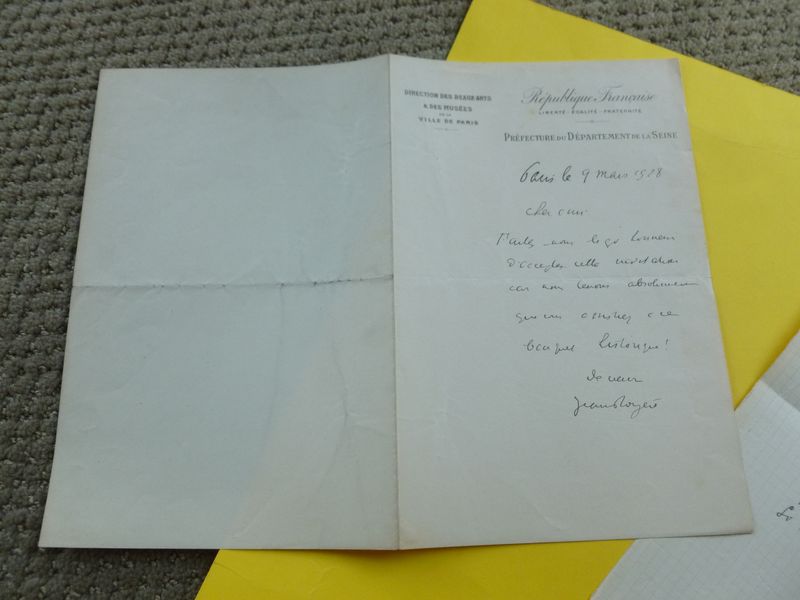 DIRECTION DES BEAUX-ARTS
& DES MUSÉES
DE LA
VILLE DE PARIS
République Française
LIBERTÉ - ÉGALITÉ - FRATERNITÉ
PRÉFECTURE DU DÉPARTEMENT DE LA SEINE
Paris le 9 mars 1928
cher ami
Faites nous l'honneur
d'accepter cette invitation
car nous tenons absolument
que vous assistiez à ce
banquet historique!
Jean Royère